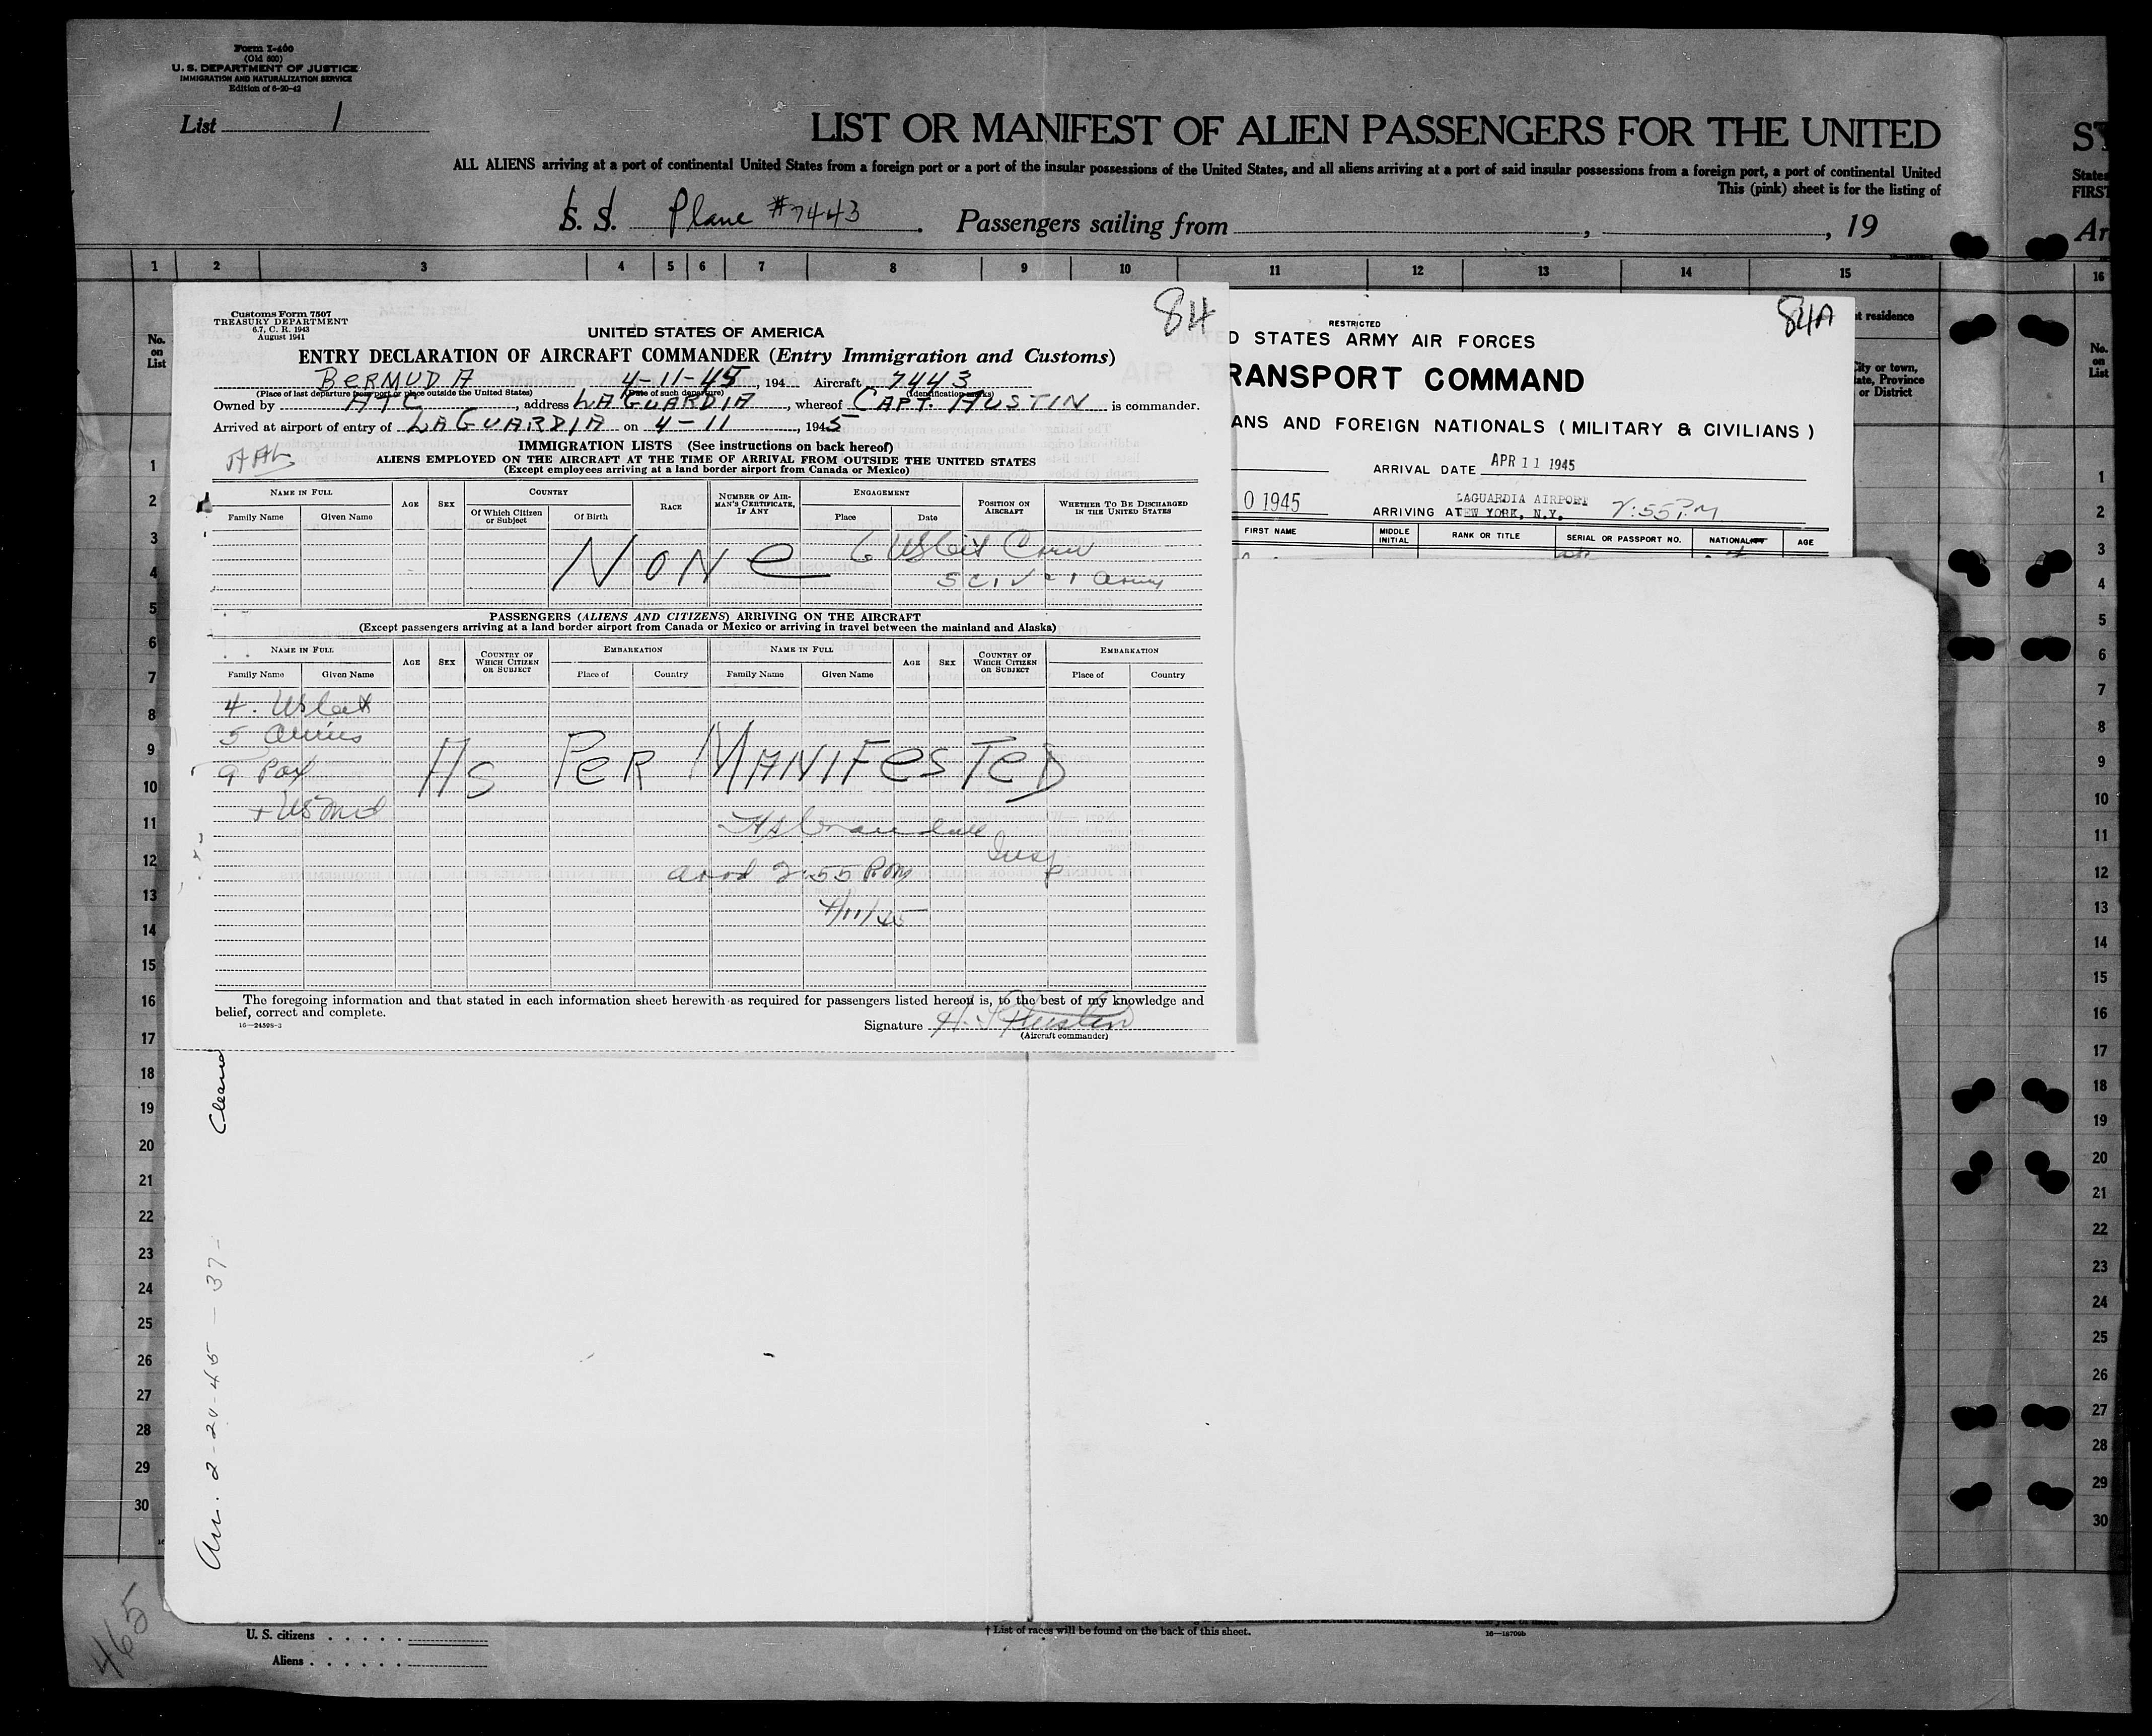 Form I-460
(Old 500)
U. S. DEPARTMENT OF JUSTICE
IMMIGRATION AND NATURALIZATION SERVICE
Edition of 6-20-42
List 1
LIST OR MANIFEST OF ALIEN PASSENGERS FOR THE UNITED
ST
ALL ALIENS arriving at a port of continental United States from a foreign port or a port of the insular possessions of the United States, and all aliens arriving at a port of said insular possessions from a foreign port, a port of continental United
States
This (pink) sheet is for the listing of
FIRST
S. S. Plane #7443. Passengers sailing from , , 19
Ar
1 2 3 4 5 6 7 8 9 10 11 12 13 14 15
16
No.
on
List
Customs Form 7507
TREASURY DEPARTMENT
6.7, C. R. 1943
August 1941
84
UNITED STATES OF AMERICA
ENTRY DECLARATION OF AIRCRAFT COMMANDER (Entry Immigration and Customs)
BERMUDA 4-11-45, 194 Aircraft 7443
(Place of last departure from port or place outside the United States) (Date of such departure) (Identification marks)
Owned by ATC, address LAGUARDIA, whereof CAPT. AUSTIN is commander.
Arrived at airport of entry of LAGUARDIA on 4-11, 1945
IMMIGRATION LISTS (See instructions on back hereof)
ALIENS EMPLOYED ON THE AIRCRAFT AT THE TIME OF ARRIVAL FROM OUTSIDE THE UNITED STATES
(Except employees arriving at a land border airport from Canada or Mexico)
NAME IN FULL AGE SEX COUNTRY RACE NUMBER OF AIRMAN'S CERTIFICATE, IF ANY ENGAGEMENT POSITION ON AIRCRAFT WHETHER TO BE DISCHARGED IN THE UNITED STATES
Family Name Given Name Of Which Citizen or Subject Of Birth Place Date
NONE 6 UScit Crew
5 civ - 1 army
PASSENGERS (ALIENS AND CITIZENS) ARRIVING ON THE AIRCRAFT
(Except passengers arriving at a land border airport from Canada or Mexico or arriving in travel between the mainland and Alaska)
NAME IN FULL AGE SEX COUNTRY OF WHICH CITIZEN OR SUBJECT EMBARKATION NAME IN FULL AGE SEX COUNTRY OF WHICH CITIZEN OR SUBJECT EMBARKATION
Family Name Given Name Place of Country Family Name Given Name Place of Country
4. UScit
5 aliens
9 Pax
AS PER MANIFESTED
Insp
arvd 2:55 PM
4/11/45
The foregoing information and that stated in each information sheet herewith as required for passengers listed hereon is, to the best of my knowledge and
belief, correct and complete.
16—24598-3
Signature Austin
(Aircraft commander)
84A
RESTRICTED
D STATES ARMY AIR FORCES
RANSPORT COMMAND
ANS AND FOREIGN NATIONALS (MILITARY & CIVILIANS)
ARRIVAL DATE APR 11 1945
0 1945
LAGUARDIA AIRPORT
ARRIVING AT NEW YORK, N.Y. 2:55 P.M
FIRST NAME MIDDLE INITIAL RANK OR TITLE SERIAL OR PASSPORT NO. NATIONALITY AGE
t residence
City or town,
ate, Province
or District
No.
on
List
1
2
3
4
5
6
7
8
9
10
11
12
13
14
15
16
17
18
19
20
21
22
23
24
25
26
27
28
29
30
1
2
3
4
5
6
7
8
9
10
11
12
13
14
15
16
17
18
19
20
21
22
23
24
25
26
27
28
29
30
465
U. S. citizens
Aliens
† List of races will be found on the back of this sheet.
16—18700b